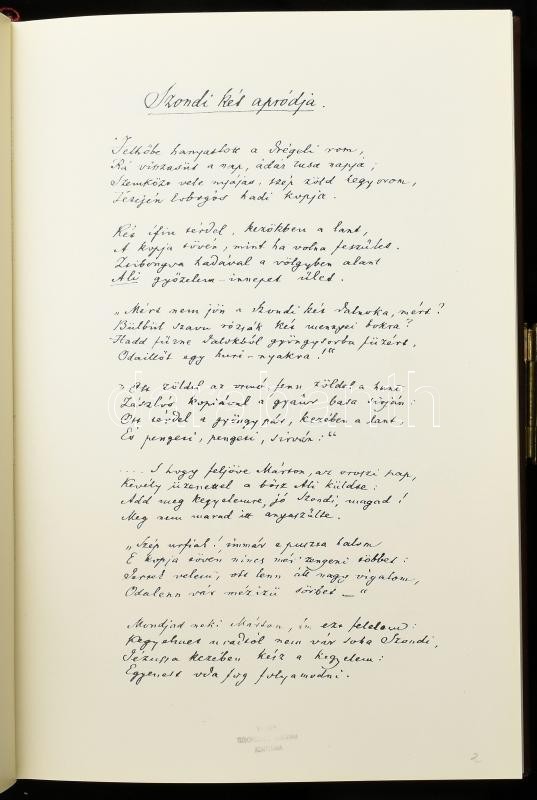 Szondi két apródja.
Felhőbe hanyatlott a drégeli rom,
Rá visszasüt a nap, ádáz tusa napja;
Szemközt vele nyájas, szép zöld hegyorom,
Tetején lobogós hadi kopja.
Két ifiu térdel, kezökben a lant,
A kopja tövén, mint ha volna feszület.
Zsibongva hadával a völgyben alant
Ali győzelem-ünnepet ület.
„Mért nem jön a Szondi két dalnoka, mért?
Bülbül szavu rózsák két mennyei bokra?
Hadd fűzne dalokból gyöngysorba füzért,
Odaillőt egy huri-nyakra!"
„Ott zöldel az ormó fenn zöldel a hant
Zászlós kopiával a gyaúr basa sírján:
Ott térdel a gyöngypár, kezében a lant,
És pengeti, pengeti, sírván:"
.... S hogy feljöve Márton, az oroszi pap,
Kevély üzenettel a bősz Ali küldte:
Add meg kegyelemre, jó Szondi, magad!
Meg nem marad itt anyaszülte.
„Szép urfiak! immár e puszta halom
E kopja tövén nincs már zengeni többet:
Jertek velem, ott lenn áll nagy vigalom,
Odalenn vár mézizü sörbet –"
Mondjad neki Márton, im ezt felelem:
Kegyelmet uradtól nem vár soha Szondi,
Jézussa kezében kész a kegyelem:
Egyenest oda fog folyamodni.
2